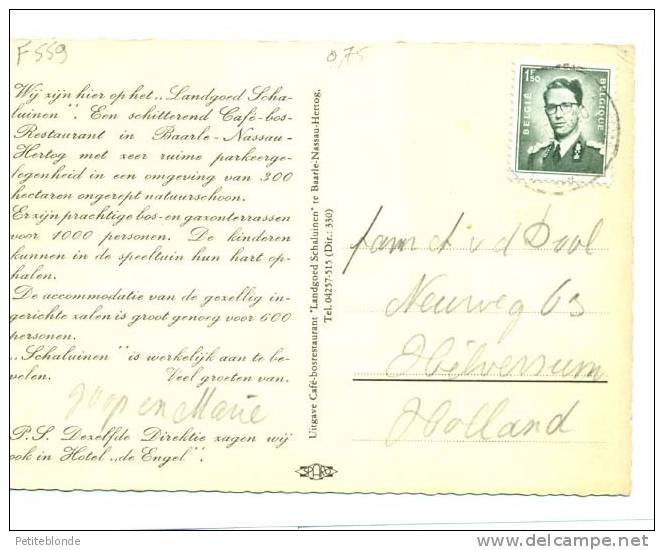 F559
0,75
Wij zijn hier op het „Landgoed Scha-
luinen”. Een schitterend Café-bos-
Restaurant in Baarle-Nassau-
Hertog met zeer ruime parkeerge-
legenheid in een omgeving van 300
hectaren ongerept natuurschoon.
Er zijn prachtige bos- en gazonterrassen
voor 1000 personen. De kinderen
kunnen in de speeltuin hun hart op-
halen.
De accommodatie van de gezellig in-
gerichte zalen is groot genoeg voor 600
personen.
„Schaluinen” is werkelijk aan te be-
velen. Veel groeten van.
Joop en Marie
P.S. Dezelfde Direktie zagen wij
ook in Hotel „de Engel”.
Uitgave Café-bosrestaurant "Landgoed Schaluinen" te Baarle-Nassau-Hertog.
Tel. 04257-515 (Dir.: 330)
SPARO
1F50
BELGIË
BELGIQUE
fam d. v d Pool
Neuweg 63
Hilversum
Holland
Petiteblonde
www.delcampe.net